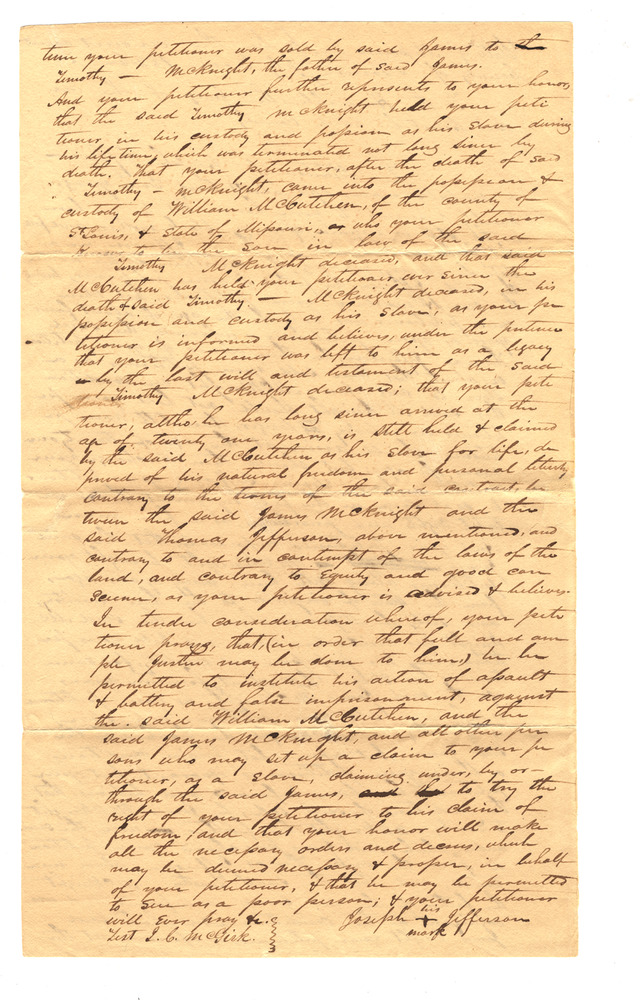 time your petitioner was sold by said James to
Timothy – McKnight, the father of said James.
And your petitioner further represents to your honor,
that the said Timothy McKnight held your peti
tioner in his custody and possession as his Slave during
his life time, which was terminated not long since by
death. That your petitioner, after the death of said
Timothy – McKnight, came into the possession &
custody of William McCutchen, of the county of
St Louis, & State of Missouri, who your petitioner
to be the Son in law of the said
Timothy McKnight deceased, and that said
McCutchen has held your petitioner ever since the
death of said Timothy – McKnight deceased, in his
possession and custody as his slave, as your pe
titioner is informed and believes, under the pretence
that your petitioner was left to him as a legacy
by the last will and testament of the said
Timothy McKnight deceased; that your peti
tioner, altho: he has long since arrived at the
age of twenty one years, is still held & claimed
by the said McCutchen as his Slave for life, de
prived of his natural freedom and personal liberty
contrary to the terms of the said contract, be
tween the said James McKnight and the
said Thomas Jefferson, above mentioned, and
contrary to and in contempt of the laws of the
land, and contrary to Equity and good con
science, as your petitioner is advised & believes.
In tender consideration whereof, your peti
tioner prays, that, (in order that full and am
ple Justice may be done to him,) he be
permitted to institute his action of assault
& battery and false imprisonment, against
the said William McCutchen, and the
said James McKnight, and all other per
sons who may set up a claim to your pe
titioner, as a Slave, claiming under, by or
through the said James, to try the
right of your petitioner to his claim of
freedom, and that your honor will make
all the necessary orders and decrees, which
may be deemed necessary & proper, in behalf
of your petitioner, & that he may be permitted
to sue as a poor person; & your petitioner
will Ever pray &c.
Joseph his + mark Jefferson
Test I. C. McGirk.